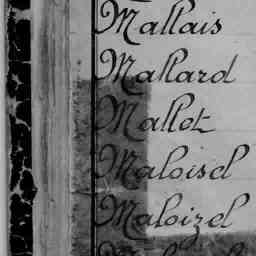 Mallais
Mallard
Mallet
Maloisel
Maloizel